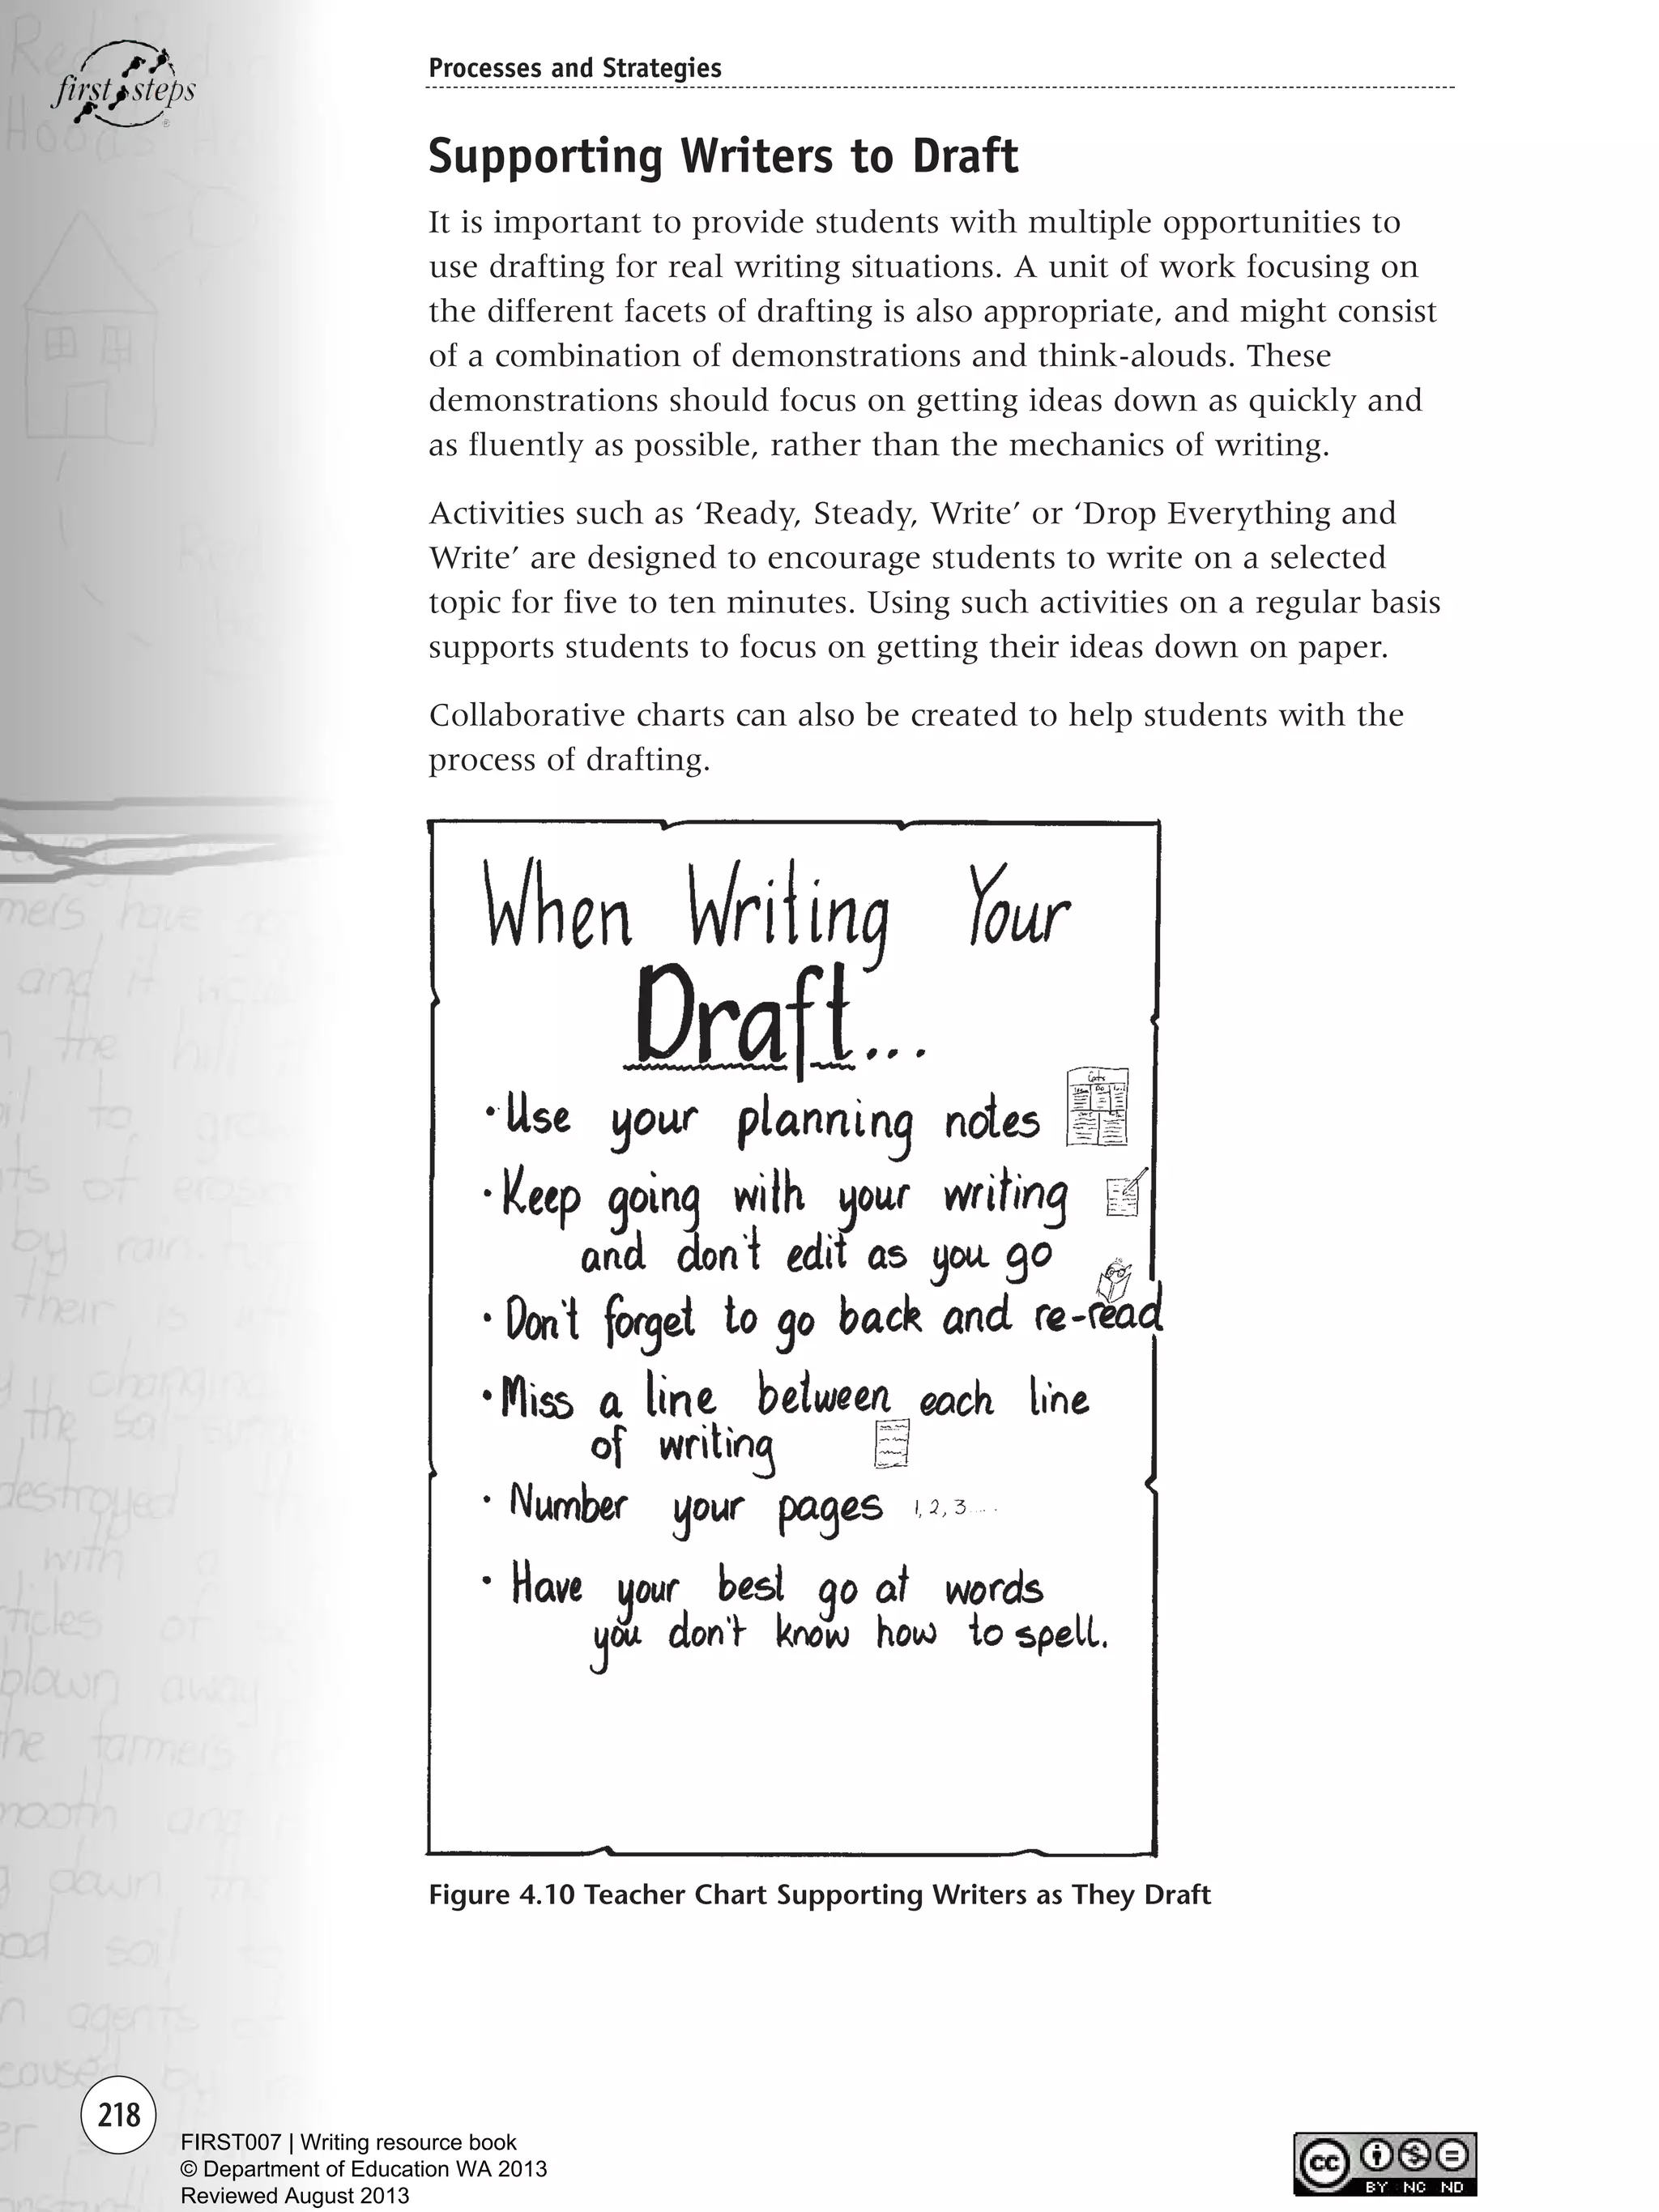 first steps
®
Processes and Strategies
Supporting Writers to Draft
It is important to provide students with multiple opportunities to
use drafting for real writing situations. A unit of work focusing on
the different facets of drafting is also appropriate, and might consist
of a combination of demonstrations and think-alouds. These
demonstrations should focus on getting ideas down as quickly and
as fluently as possible, rather than the mechanics of writing.
Activities such as ‘Ready, Steady, Write’ or ‘Drop Everything and
Write’ are designed to encourage students to write on a selected
topic for five to ten minutes. Using such activities on a regular basis
supports students to focus on getting their ideas down on paper.
Collaborative charts can also be created to help students with the
process of drafting.
When Writing Your
Draft...
• Use your planning notes
• Keep going with your writing
and don't edit as you go
• Don't forget to go back and re-read
• Miss a line between each line
of writing
• Number your pages 1, 2, 3 ....
• Have your best go at words
you don't know how to spell.
Figure 4.10 Teacher Chart Supporting Writers as They Draft
218
FIRST007 | Writing resource book
© Department of Education WA 2013
Reviewed August 2013
cc
BY NC ND